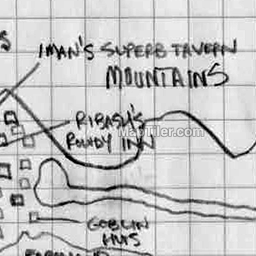 S
IMAN'S SUPERB TAVERN
MOUNTAINS
RIBASH'S
ROWDY INN
MapTiler.com
GOBLIN
HUTS